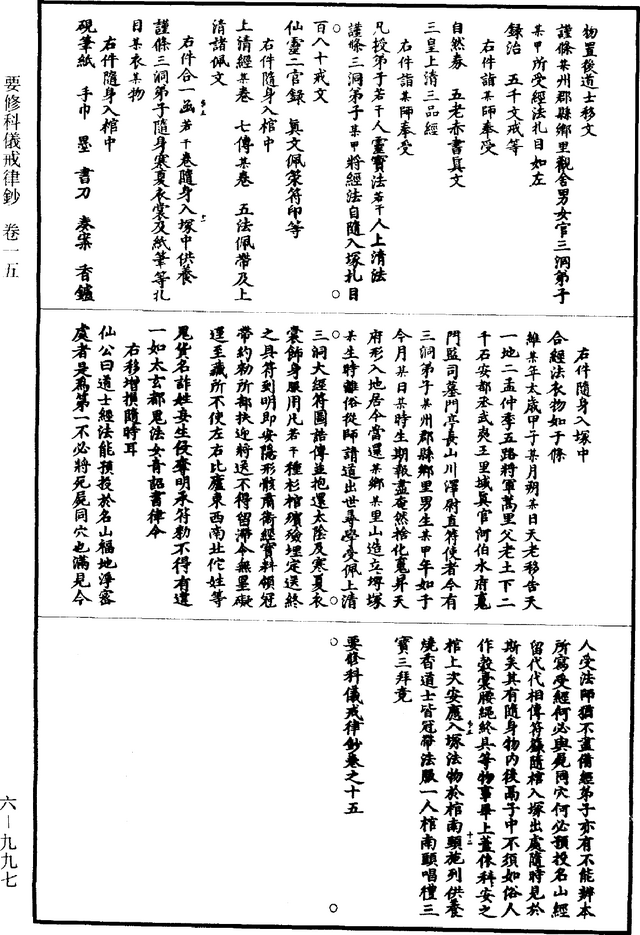 物置後道士移文
謹條某州郡縣鄉里觀舍男女官三洞弟子
某甲所受經法札目如左
録治　五千文戒等
右件詣某師奉受
自然券　五老赤書真文
三皇上清三品經
右件詣某師奉受
凡授弟子若干人靈寶法若干人上清法
謹條三洞弟子某甲將經法自隨入塚札目
百八十戒文
仙靈二官録　真文佩策符印等
右件隨身入棺中
上清經某卷　七傳某卷　五法佩帶及上
清諸佩文
右件合一函若干卷隨身入塚中供養
謹條三洞弟子隨身寒夏衣裳及紙筆等札
目某衣某物
右件隨身入棺中
硯筆紙　手巾　墨　書刀　奏案　香鑪
右件隨身入塚中
合經法衣物如于條
維某年太歲甲子某月朔某日天老移告天
一地二孟仲季五路將軍蒿里父老土下二
千石安都丞武夷王里域真官河伯水府
門監司墓門亭長山川澤尉直符使者今有
三洞弟子某州郡縣鄉里男生某甲年如于
今月某日某時生期報盡奄然捨化寃昇天
府形入地居今當還某鄉某里山造立塼塚
某生時離俗從師請道出世尋學受佩上清
三洞大經符圖誥傳並抱還太陰及寒夏衣
裳飾身服用凡若干種杉棺殯殮埋定送終
之具符到明即安隱形骸肅衛經寶料領冠
帶約勑所部扶迎將送不得留滯令無罣礙
逕至藏所不使左右比廬東西南北佗姓等
鬼貨名詐姓妄生侵奪明承符勑不得有違
一如太玄都鬼法女青詔書律令
右移增損隨時耳
仙公曰道士經法能預投於名山福地淨密
處者是爲第一不必將死屍同穴也滿見今
人受法師猶不盡備經弟子亦有不能辦本
所寫受經何必與屍同穴何必預投名山經
留代代相傳符籙隨棺入塚出處隨時見於
斯矣其有隨身物内後髙子中不須如俗人
作穀囊腰繩終具等物事畢上蓋依科安之
棺上次安應入塚法物於棺南頭施列供養
燒香道士皆冠帶法服一人棺南頭唱禮三
寶三拜竟
要修科儀戒律鈔卷之十五
要修科儀戒律鈔　卷一五
六－九九七